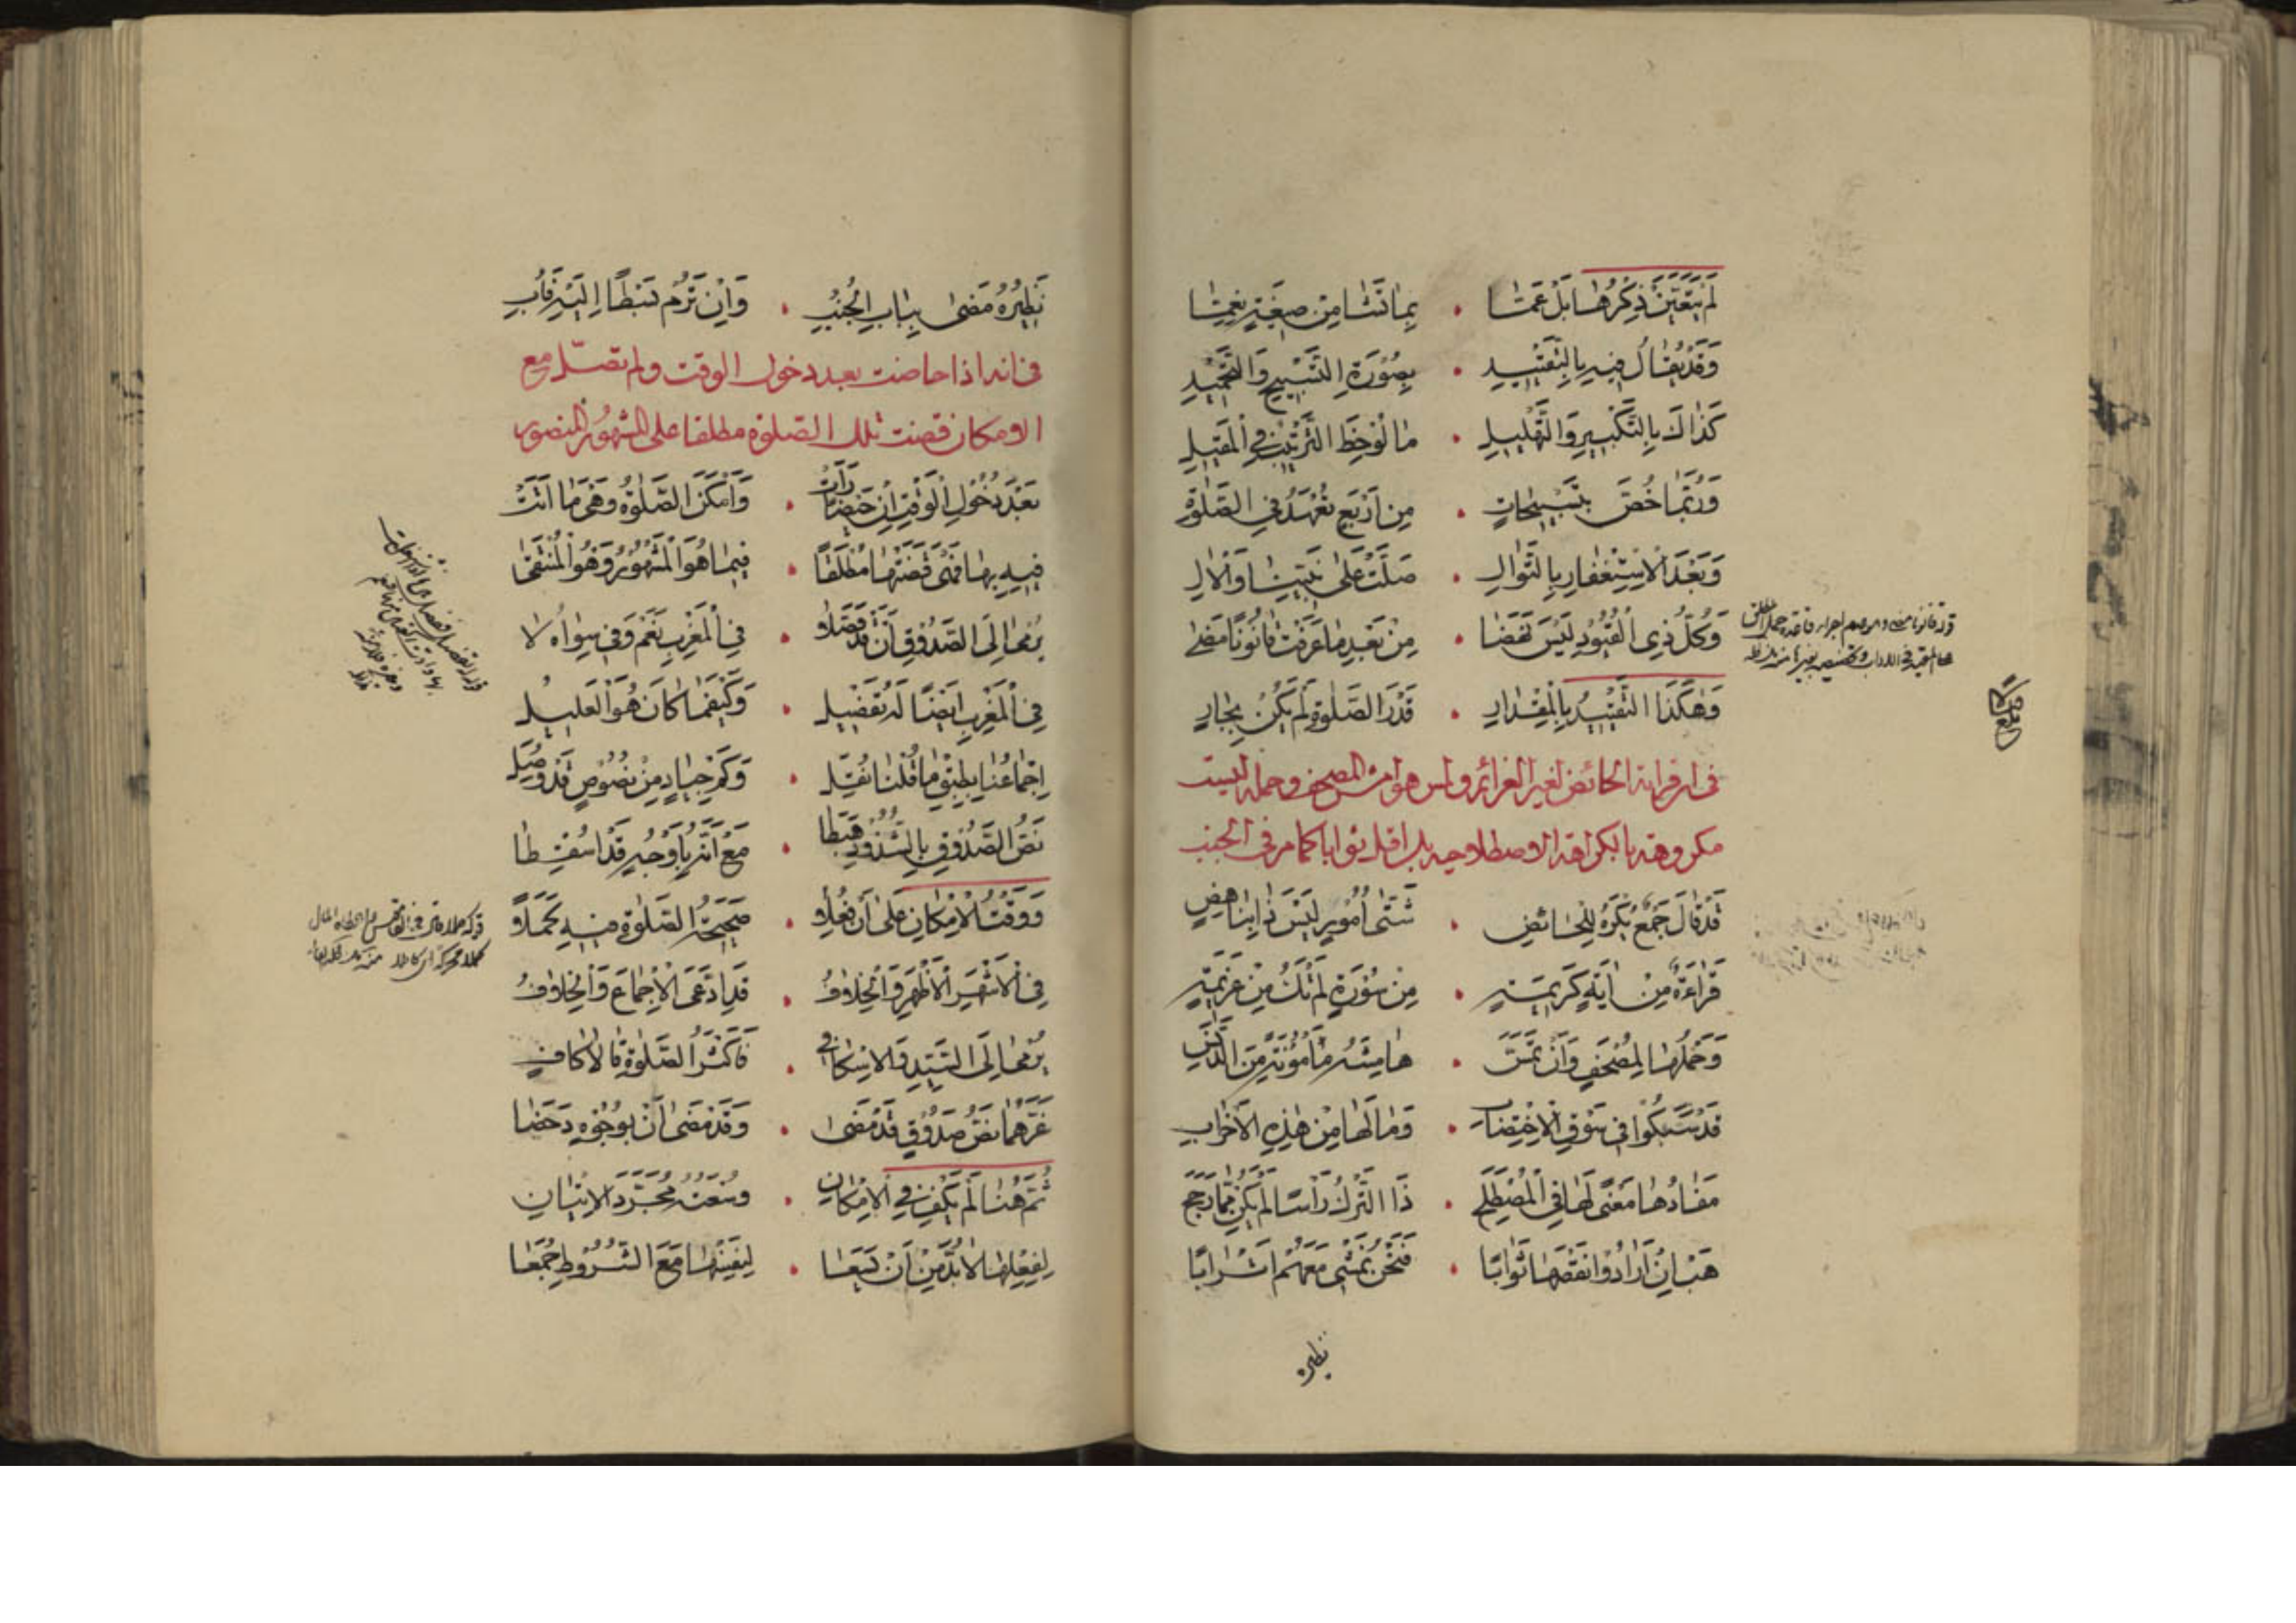 لَمْ يَتَعَيَّنْ ذِكْرُهَا بَلْ عَمَّتَا • بِمَا تَشَا مِنْ صِيغَةٍ نِعِمَّتَا
وَقَدْ يُقَالُ فِيهِ بِالتَّقْيِيدِ • بِصُورَةِ التَّسْبِيحِ وَالتَّحْمِيدِ
كَذَاكَ بِالتَّكْبِيرِ وَالتَّهْلِيلِ • مَا لُوحِظَ التَّرْتِيبُ فِي الْمَقِيلِ
وَرُبَّمَا خُصَّ بِتَسْبِيحَاتٍ • مِنْ أَرْبَعٍ تُعْهَدُ فِي الصَّلٰوةِ
وَبَعْدَ الْاِسْتِغْفَارِ بِالتَّوَالِ • صَلَّتْ عَلَى نَبِيِّنَا وَالْآلِ
وَكُلُّ ذِي الْقُيُودِ لَيْسَ نَقْضَا • مِنْ بَعْدِ مَا عَرَفْتَ قَانُونًا مَضَى
وَهٰكَذَا التَّقْيِيدُ بِالْمِقْدَارِ • قَدْرَ الصَّلٰوةِ لَمْ يَكُنْ بِجَارِ
فى ان قرائة الحائض لغير العزائم ولمس هوامش المصحف وحمله ليست
مكروهة بالكراهة الاصطلاحيه بل اقل ثوابا كما مر فى الجنب
قَدْ قَالَ جَمْعٌ يُكْرَهُ لِلْحَائِضِ • شَتَّى أُمُورٍ لَيْسَ ذَا بِنَاهِضِ
قَرَاءَةٌ مِنْ اٰيَةٍ كَرِيمَةٍ • مِنْ سُورَةٍ لَمْ تَكُ مِنْ عَزِيمَةٍ
وَحَمْلُهَا لِمُصْحَفٍ وَأَنْ تَمَسَّ • هَامِشَهُ مَأْمُونَةً مِنَ الدَّنَسِ
قَدْ سَبَكُوا فِي سَوْقِ الْاِخْتِضَابِ • وَمَا لَهَا مِنْ هٰذِهِ الْأَخْرَابِ
مَفَادُهَا مَعْنًى لَهَا فِي الْمُصْطَلَحِ • ذَا التَّرْكُ رَأْسًا لَمْ يَكُنْ مِمَّا رَجَحَ
هَبْ إِنْ أَرَادُوا نَقْصَهَا ثَوَابًا • فَنَحْنُ نَمْشِي مَعَهُمْ أَسْرَابًا
نظيره
نَظِيرُهُ مَضَى بِبَابِ الْجُنُبِ • وَإِنْ تَرُمْ بَسْطًا إِلَيْهِ فَأُبِ
فى انه اذا حاضت بعد دخول الوقت ولم تصلّ مع
الامكان قضت تلك الصلوة مطلقا على المشهور المنصور
بَعْدَ دُخُولِ الْوَقْتِ إِنْ حَيْضًا رَأَتْ • وَأَمْكَنَ الصَّلٰوةُ وَهْيَ مَا أَتَتْ
فِيهِ بِهَا فَهْيَ قَضَتْهَا مُطْلَقًا • فِيمَا هُوَ الْمَشْهُورُ وَهُوَ الْمُنْتَقَى
يُنْمَى إِلَى الصَّدُوقِ أَنْ قَدْ فَصَّلَا • فِي الْمَغْرِبِ نَعَمْ وَفِي سِوَاهُ لَا
فِي الْمَغْرِبِ أَيْضًا لَهُ تَفْضِيلُ • وَكَيْفَمَا كَانَ هُوَ الْعَلِيلُ
إِجْمَاعُنَا بِطِبْقِ مَا قُلْنَا نُقِلَ • وَكَمْ جِيَادٍ مِنْ نُصُوصٍ قَدْ وُصِلَ
نَصُّ الصَّدُوقِ بِالشُّذُوذِ هَبَطَا • مَعْ أَنَّهُ بِأَوْجُهٍ قَدْ اُسْقِطَا
وَوَقْتُ الْاِمْكَانِ عَلَى أَنْ تَفْعَلَا • صَحِيحَةَ الصَّلٰوةِ فِيهِ كَمَلَا
فِي الْأَشْهَرِ الْأَظْهَرِ وَالْخِلَافُ • قَدِ ادَّعَى الْاِجْمَاعَ وَالْخِلَافُ
يُنْمَى إِلَى السَّيِّدِ وَالْاِسْكَافِي • فَأَكْثَرُ الصَّلٰوةِ قَالَا كَافِ
غَرَّهُمَا نَصُّ صَدُوقٍ قَدْ مَضَى • وَقَدْ مَضَى أَنْ بِوُجُوهٍ دَحَضَا
ثُمَّ هُنَا لَمْ يَكْفِ فِي الْاِمْكَانِ • وُسْعَتُهُ مُجَرَّدَ الْاِتْيَانِ
لِفِعْلِهَا لَا بُدَّ مِنْ أَنْ يَسَعَا • لِنَفْسِهَا مَعَ الشُّرُوطِ جُمَعَا